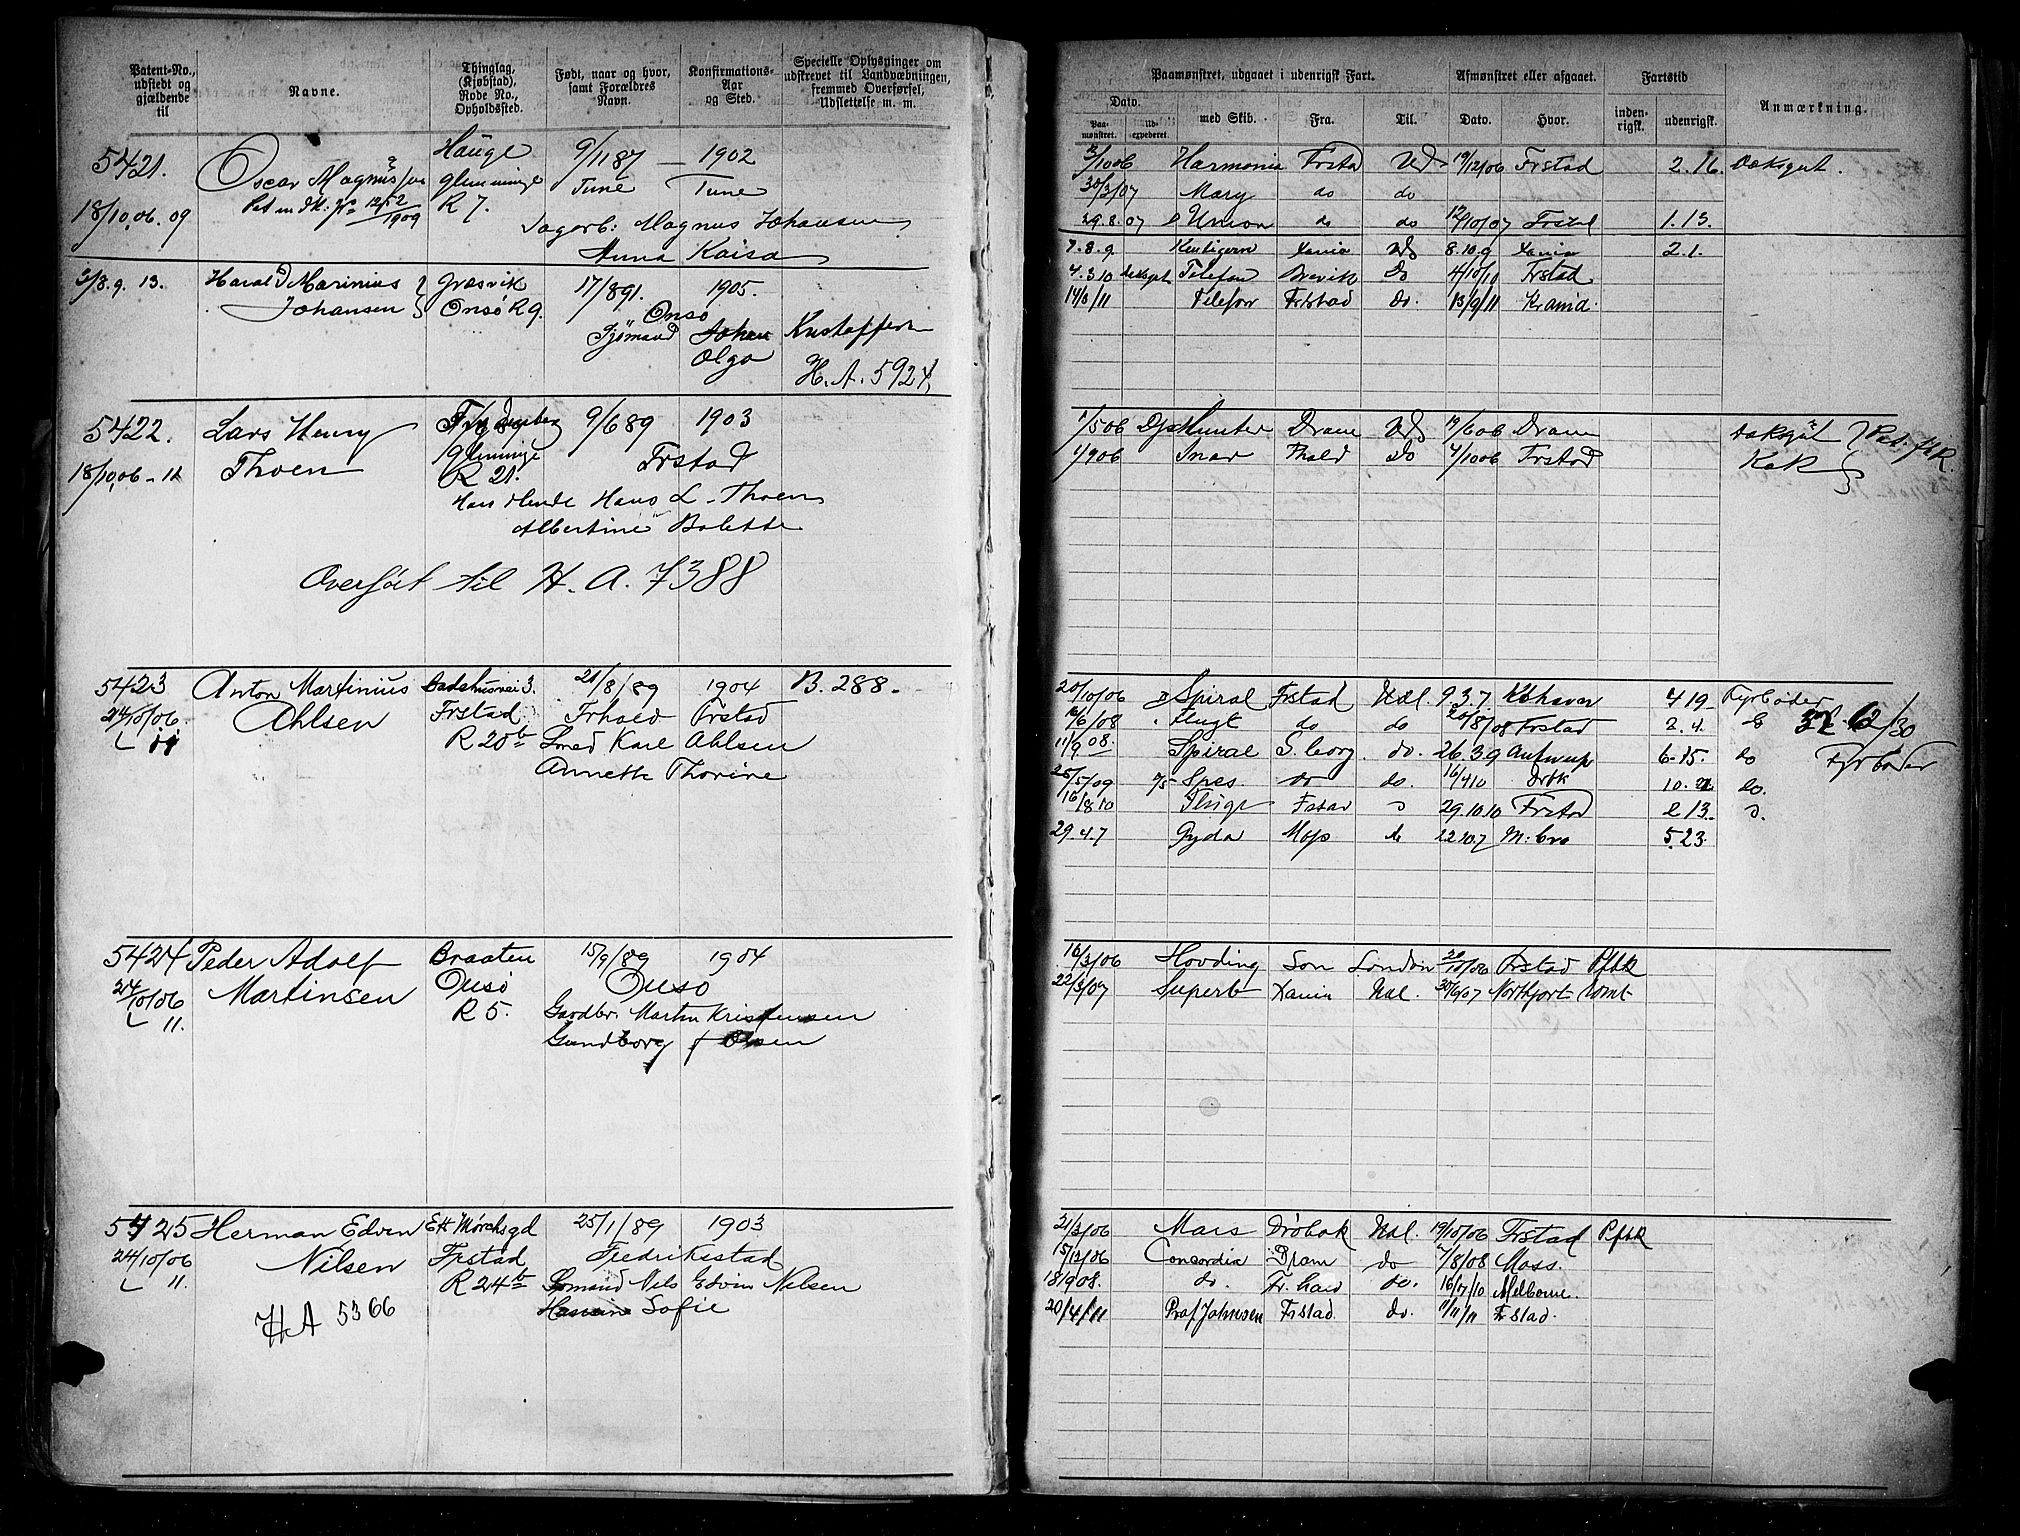 Patent-No., udstedt og gjældende til
Navne.
Thinglag, (Kjøbstad), Rode No., Opholdssted.
Født, naar og hvor, samt Forældres Navn.
Konfirmations-Aar og Sted.
Specielle Oplysninger om udskrevet til Landvæbningen, fremmed Overførsel, Udslettelse m. m.
5421.
18/10.06. 09
Oscar Magnussen
Hauge
Glemminge
R 7.
9/11 87 — 1902
Tune Tune
Dagarb: Magnus Johansen
Anna Kaisa
3/8.9. 13.
Harald Marinius
Johansen
Græsvik
Onsø R 9.
17/8 91. 1905.
Onsø
Sjømand Johan Kristoffersen
Olga
H. A. 5924
5422.
18/10.06 - 11
Lars Henry
Thoen
Glemminge
R 21.
9/6 89 1903
Frstad
Handlende Hans L. Thoen
Albertine Bolette
Overført til H. A. 7388
5423
24/10/06.
11
Anton Martinius
Ahlsen
Badehusvei 3.
Frstad
R 20b
21/8/89 1904
Frhald Frstad
Smed Karl Ahlsen
Annette Thorine
B. 288.
5424
24/10/06
11.
Peder Adolf
Martinsen
Braaten
Onsø
R 5.
15/9/89 1904
Onsø
Gaardbr. Martin Kristensen
Gundborg f Olsen
5425
24/10/06
11.
Herman Edvin
Nilsen
HA 5366
Ett Mørchsgd
Frstad
R 24b
25/1/89 1903
Fredriksstad
Sømand Nels Edvin Nilsen
Sofie
Paamønstret, udgaaet i udenrigsk Fart.
Afmønstret eller afgaaet.
Fartstid
Anmærkning.
Dato.
Paa-mønstret.
Ud-expederet.
med Skib.
Fra.
Til.
Dato.
Hvor.
inden-rigsk.
udenrigsk.
/10 06 Harmonia Frstad Uds 19/12/06 Frstad 2. 16. Dæksgut.
30/3/07 Mary do do
29.8.07 Union do do 12/10/07 Frstad 1. 13.
7.8.9. Xania Uds 8.10.9 Xania 2.1.
4.3.10 Dæksgut Telefon Brevik Do 4/10/10 Frstad
14/3/11 Telefon Frstad do. 13/9/11 Xrania.
1/5 06 Hunter Dram Uds 17/6 06 Dram Dæksgut
1/9 06 Snar Fhald Do 4/10 06 Frstad Kok
20/10/06 Spiral Frstad Udl. 9.3.7. Kbhavn 4 19 Fyrbøder
16/6/08 Flugt do do 20/8/08 Frstad 2.4.
11/9 08. Spiral S. Georg. do. 26.3.9 Antwerp 6-15. do
25/5/09 Spes. do do. 16/4 10 Drbk 10. do.
16/8 10 Flugt Fstad 29.10.10 Frstad 2 13.
29.4.7 Gyda Mops 22.10.7 5.23.
/30
Fyrbøder
16/3/06 Hovding Son London 20/10/06 Frstad Pftk
22/3/07 Superb Xania Udl. 30/6/07 Northfort Rømt
21/3/06 Mars Drøbak Udl. 19/10/06 Frstad Pftk
15/12/06 Concordia Dram do 7/8/08 Moss.
18 19 08. do. Fr. hald do. 16/7/10 Melborne.
20/4/11 Prof Johnsen Frstad. do. 11/11 Frstad.